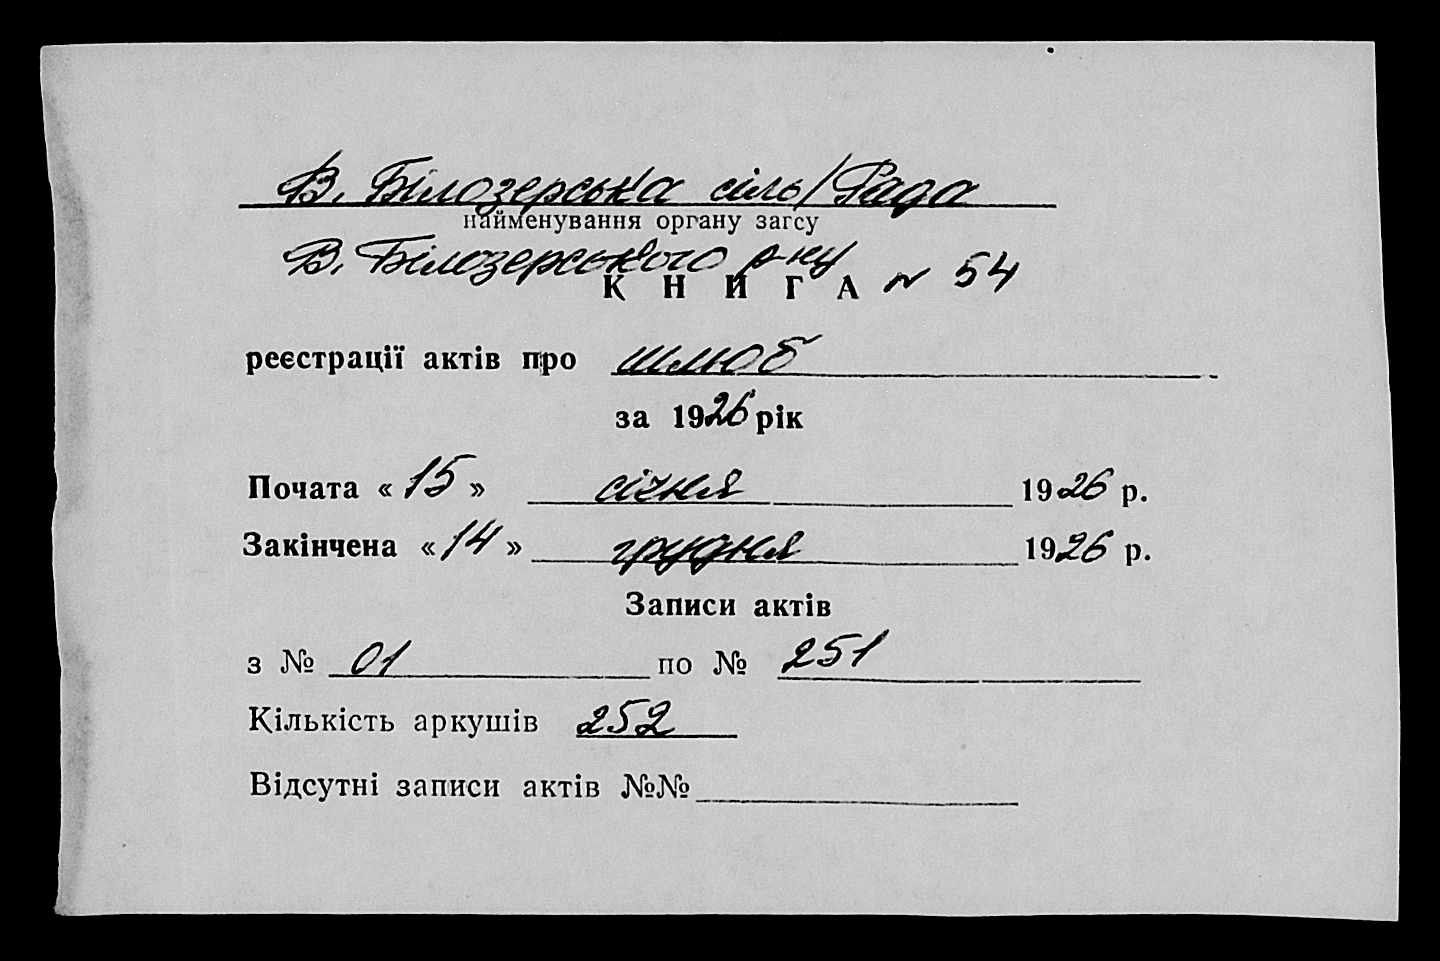 В. Білозерська сіль/Рада
найменування органу загсу
В. Білозерського р-ну
КНИГА № 54
реєстрації актів про шлюб
за 1926 рік
Почата «15» січня 1926 р.
Закінчена «14» грудня 1926 р.
Записи актів
з № 01 по № 251
Кількість аркушів 252
Відсутні записи актів №№